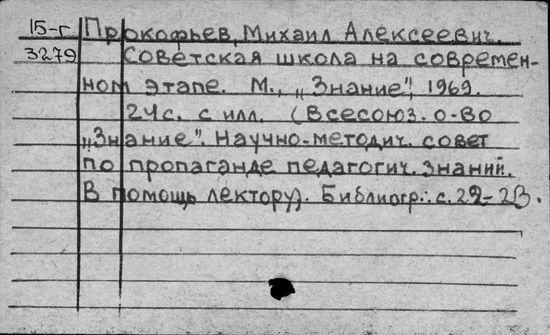 15-г Прокофьев, Михаил Алексеевич.
3279 Советская школа на современ-
ном этапе. М., „Знание", 1969.
24с. с илл. (Всесоюз. о-во
„Знание". Научно-методич. совет
по пропаганде педагогич. знаний.
В помощь лектору). Библиогр.: с. 22-23.